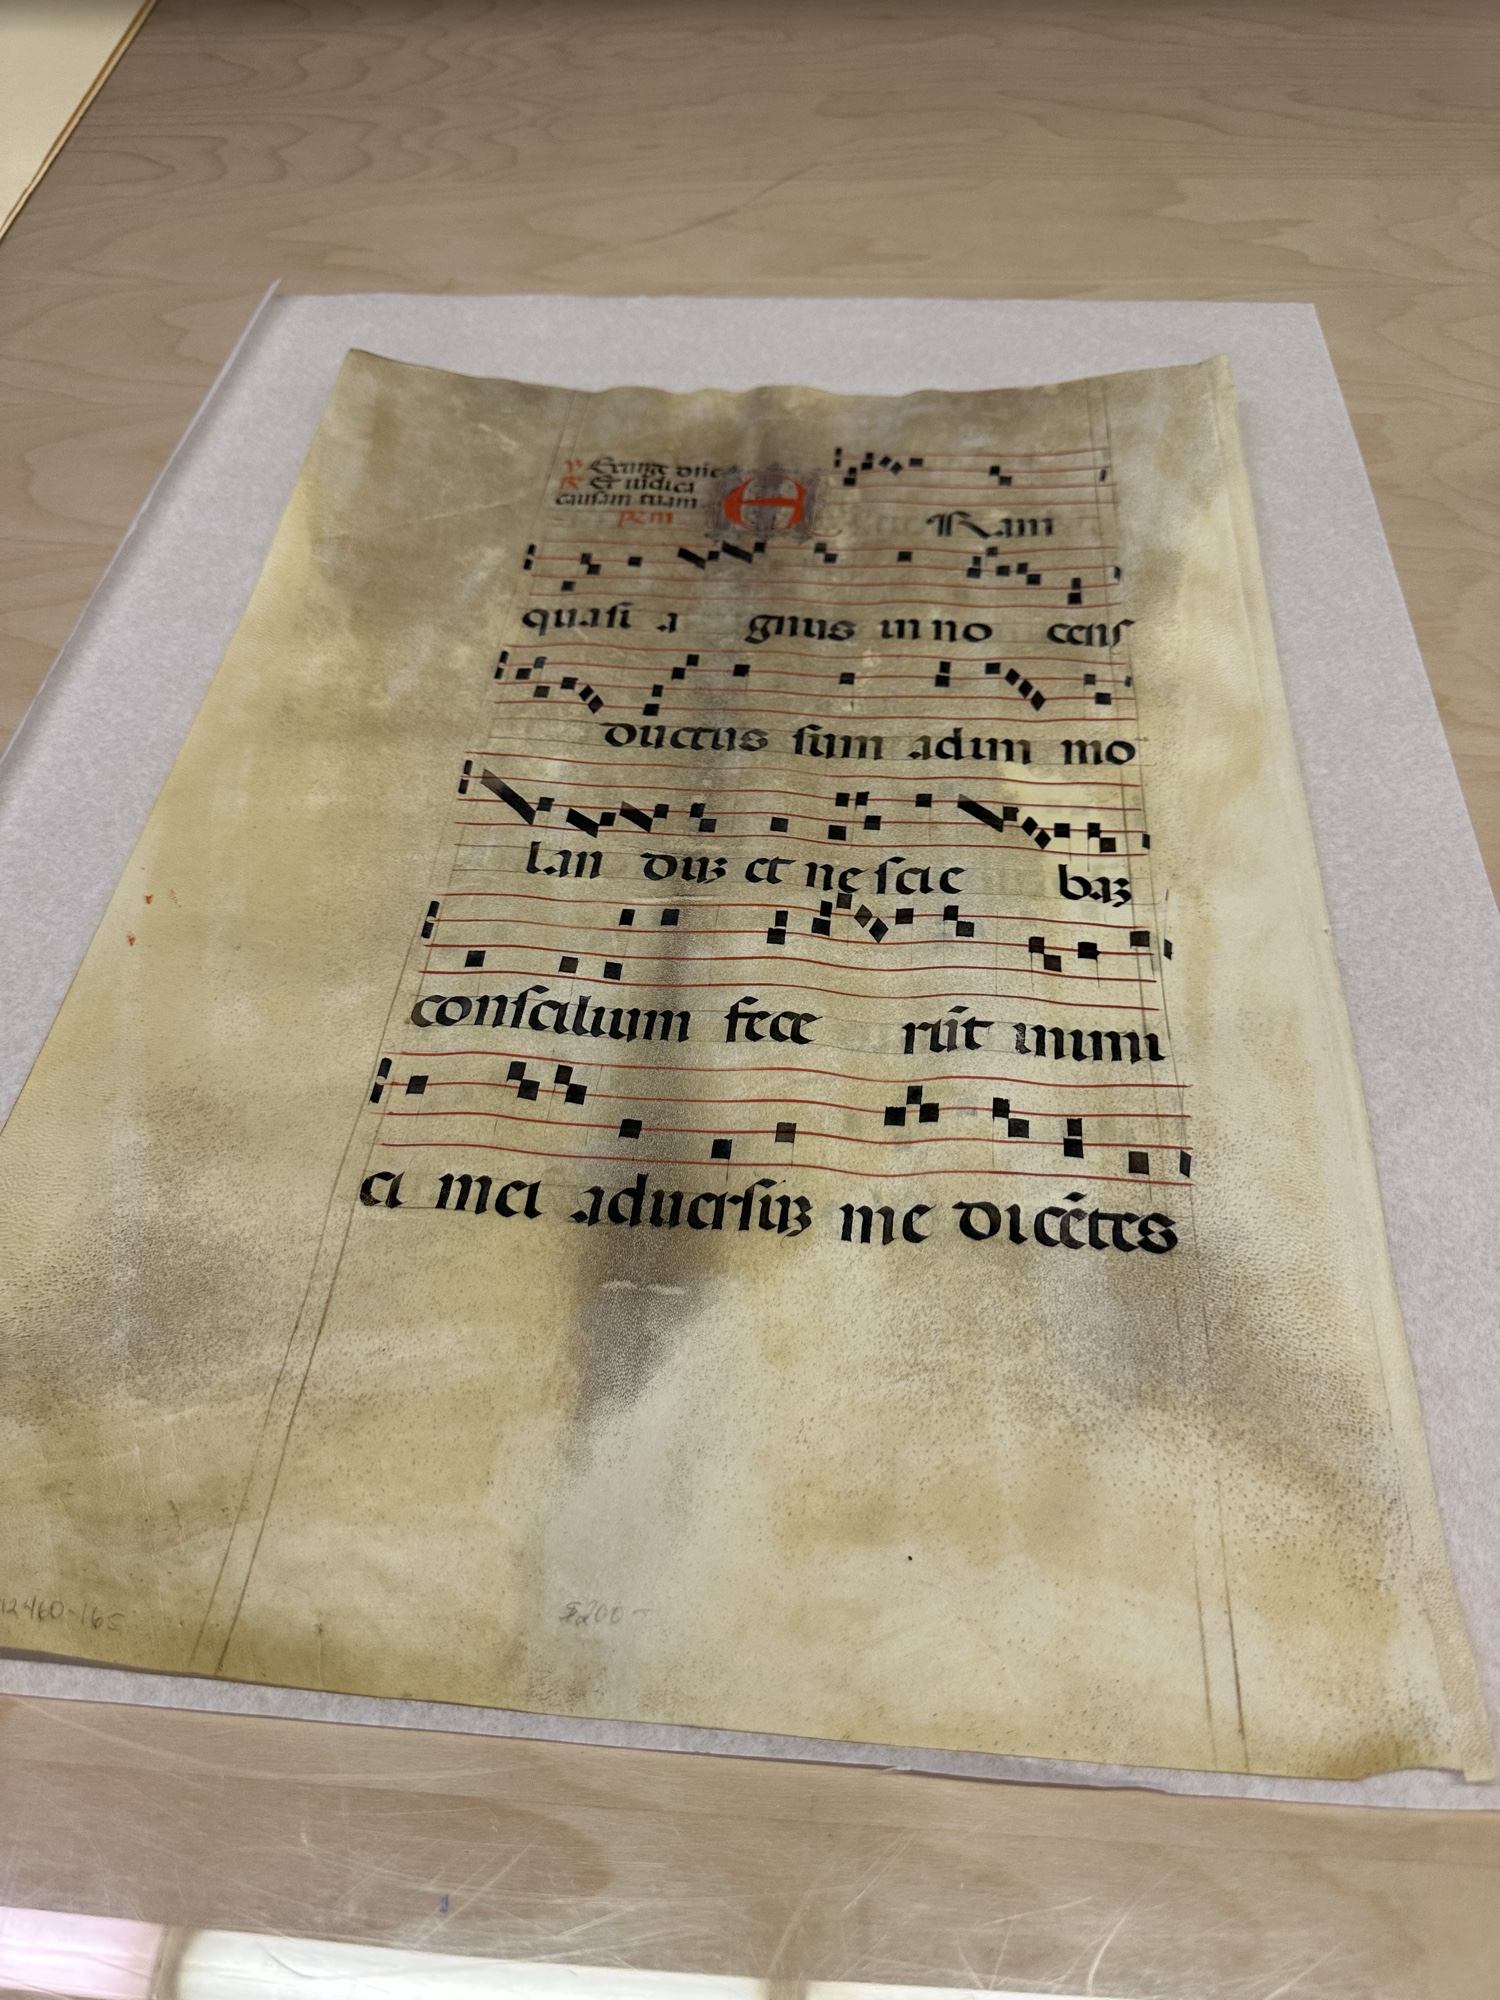 ℣ Exurge dn̄e
℟ Et iudica
causam tuam
E Ram
quasi a gnus in no cens
ductus sum ad im mo
lan duꝫ et ne scie baꝫ
conscilium fece rūt inimi
ci mei aduersuꝫ me dicētes
12460-165
$200-